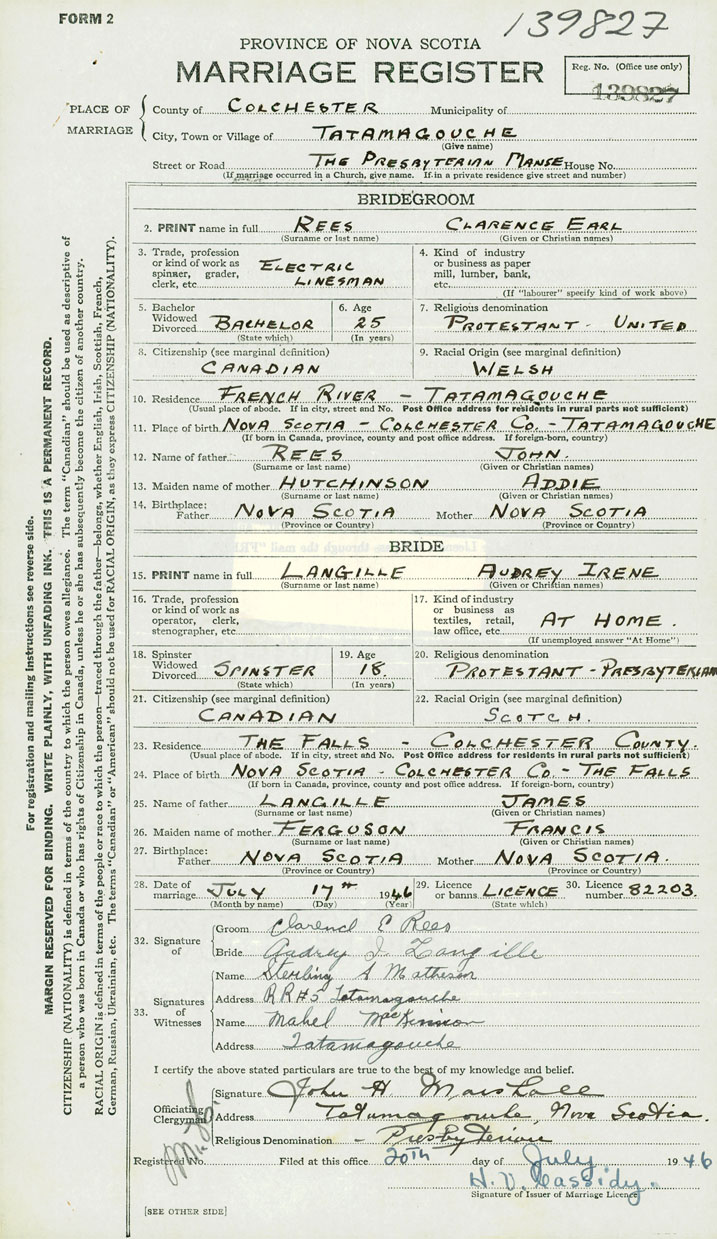 FORM 2
139827
PROVINCE OF NOVA SCOTIA
MARRIAGE REGISTER
Reg. No. (Office use only)
139827
PLACE OF MARRIAGE
County of COLCHESTER Municipality of
City, Town or Village of TATAMAGOUCHE
(Give name)
Street or Road THE PRESBYTERIAN MANSE House No.
(If marriage occurred in a Church, give name. If in a private residence give street and number)
BRIDEGROOM
2. PRINT name in full REES CLARENCE EARL
(Surname or last name) (Given or Christian names)
3. Trade, profession or kind of work as spinner, grader, clerk, etc. ELECTRIC LINESMAN
4. Kind of industry or business as paper mill, lumber, bank, etc.
(If "labourer" specify kind of work above)
5. Bachelor Widowed Divorced BACHELOR
(State which)
6. Age 25
(In years)
7. Religious denomination
PROTESTANT - UNITED
8. Citizenship (see marginal definition)
CANADIAN
9. Racial Origin (see marginal definition)
WELSH
10. Residence FRENCH RIVER - TATAMAGOUCHE
(Usual place of abode. If in city, street and No. Post Office address for residents in rural parts not sufficient)
11. Place of birth NOVA SCOTIA - COLCHESTER CO. - TATAMAGOUCHE
(If born in Canada, province, county and post office address. If foreign-born, country)
12. Name of father REES JOHN.
(Surname or last name) (Given or Christian names)
13. Maiden name of mother HUTCHINSON ADDIE
(Surname or last name) (Given or Christian names)
14. Birthplace: Father NOVA SCOTIA Mother NOVA SCOTIA
(Province or Country) (Province or Country)
BRIDE
15. PRINT name in full LANGILLE AUDREY IRENE
(Surname or last name) (Given or Christian names)
16. Trade, profession or kind of work as operator, clerk, stenographer, etc.
17. Kind of industry or business as textiles, retail, law office, etc. AT HOME.
(If unemployed answer "At Home")
18. Spinster Widowed Divorced SPINSTER
(State which)
19. Age 18.
(In years)
20. Religious denomination
PROTESTANT - PRESBYTERIAN
21. Citizenship (see marginal definition)
CANADIAN
22. Racial Origin (see marginal definition)
SCOTCH.
23. Residence THE FALLS - COLCHESTER COUNTY.
(Usual place of abode. If in city, street and No. Post Office address for residents in rural parts not sufficient)
24. Place of birth NOVA SCOTIA - COLCHESTER CO. - THE FALLS
(If born in Canada, province, county and post office address. If foreign-born, country)
25. Name of father LANGILLE JAMES
(Surname or last name) (Given or Christian names)
26. Maiden name of mother FERGUSON FRANCIS
(Surname or last name) (Given or Christian names)
27. Birthplace: Father NOVA SCOTIA Mother NOVA SCOTIA.
(Province or Country) (Province or Country)
28. Date of marriage JULY 17TH 1946
(Month by name) (Day) (Year)
29. Licence or banns LICENCE
(State which)
30. Licence number 82203.
32. Signature of
Groom Clarence E Rees
Bride Audrey I. Langille
33. Signatures of Witnesses
Name Sterling S Matheson
Address RR#5 Tatamagouche
Name Mabel MacKinnon
Address Tatamagouche
I certify the above stated particulars are true to the best of my knowledge and belief.
Officiating Clergyman
Signature John H Marshall
Address Tatamagouche, Nova Scotia.
Religious Denomination - Presbyterian
Registered No. Filed at this office 20th day of July 1946
H. V. Cassidy.
Signature of Issuer of Marriage Licence
[SEE OTHER SIDE]
For registration and mailing instructions see reverse side.
MARGIN RESERVED FOR BINDING. WRITE PLAINLY, WITH UNFADING INK. THIS IS A PERMANENT RECORD.
CITIZENSHIP (NATIONALITY) is defined in terms of the country to which the person owes allegiance. The term "Canadian" should be used as descriptive of
a person who was born in Canada or who has rights of Citizenship in Canada, unless he or she has subsequently become the citizen of another country.
RACIAL ORIGIN is defined in terms of the people or race to which the person—traced through the father—belongs, whether English, Irish, Scottish, French,
German, Russian, Ukrainian, etc. The terms "Canadian" or "American" should not be used for RACIAL ORIGIN, as they express CITIZENSHIP (NATIONALITY).